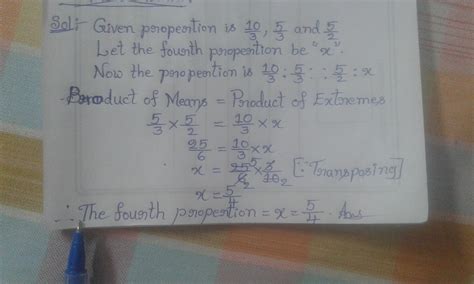 Sol:- Given propertion is 10/3, 5/3 and 5/2
Let the fourth propertion be "x".
Now the propertion is 10/3 : 5/3 :: 5/2 : x
Product of Means = Product of Extremes
5/3 × 5/2 = 10/3 × x
25/6 = 10/3 × x
x = 25/6 × 3/10 [∵ Transposing]
x = 5/4
∴ The fourth propertion = x = 5/4 . Ans